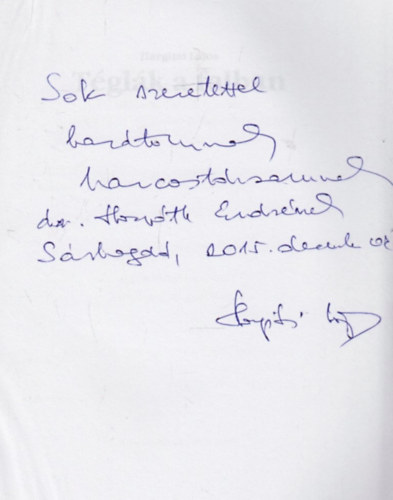 Sok szeretettel
barátomnak
harcostársamnak
dr. Horváth Endrének
Sárbogárd, 2015. decemb